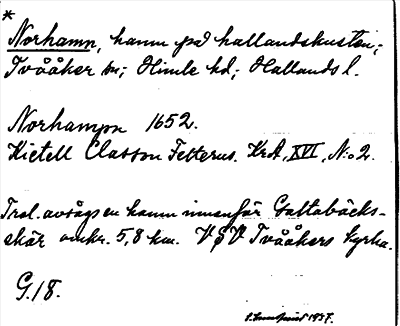 *
Norhamn, hamn på hallandskusten;
Tvååker sn; Himle hd; Hallands l.
Norhampn 1652.
Kietell Classon Fetterus. KrA, XVI, N:o 2.
Trol. avsågs en hamn innanför Galtabäcks-
skär omkr. 5,8 km. VSV Tvååkers kyrka.
G.18.
1937.